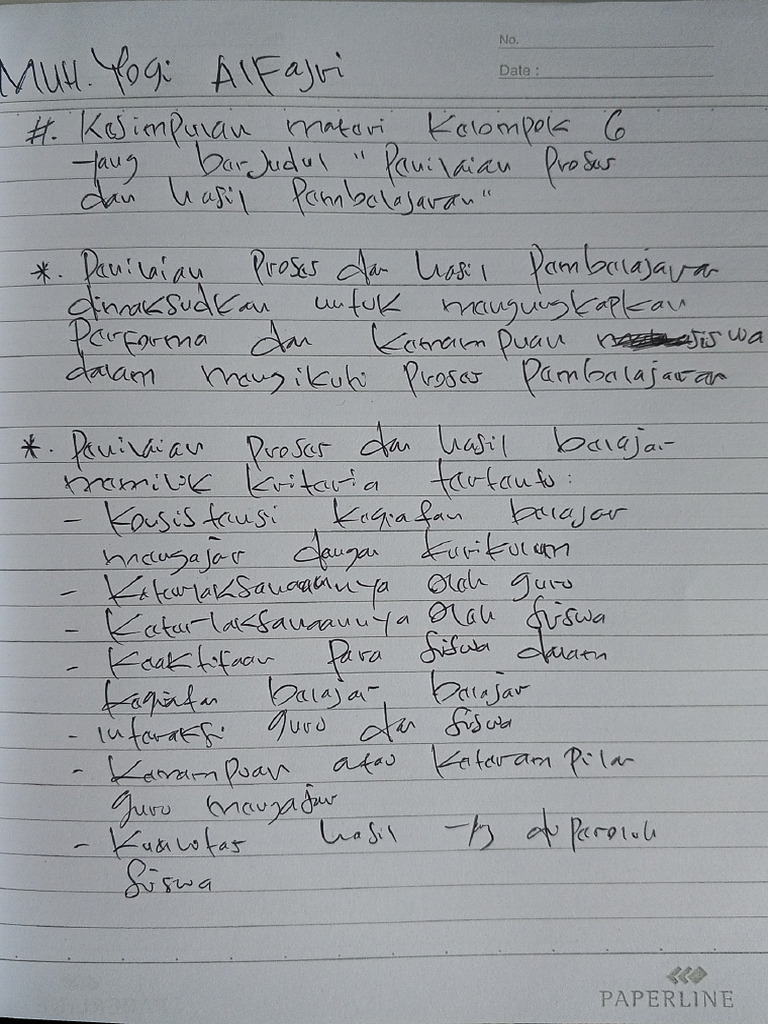 No.
Date :
MUH. Yogi AlFajri
#. Kesimpulan materi Kelompok 6
yang berjudul "Penilaian Proses
dan hasil Pembelajaran"
*. Penilaian Proses dan hasil Pembelajaran
dimaksudkan untuk mengungkapkan
Performa dan Kemampuan siswa
dalam mengikuti Proses Pembelajaran
*. Penilaian Proses dan hasil belajar
memilik kriteria tertentu :
- Konsistensi kegiatan belajar
mengajar dengan kurikulum
- Keterlaksanaannya oleh guru
- Keterlaksanaannya oleh siswa
- Keaktifaan Para siswa dalam
kegiatan belajar belajar
- interaksi guru dan siswa
- Kemampuan atau Keterampilan
guru mengajar
- Kualitas hasil yg di peroleh
siswa
PAPERLINE